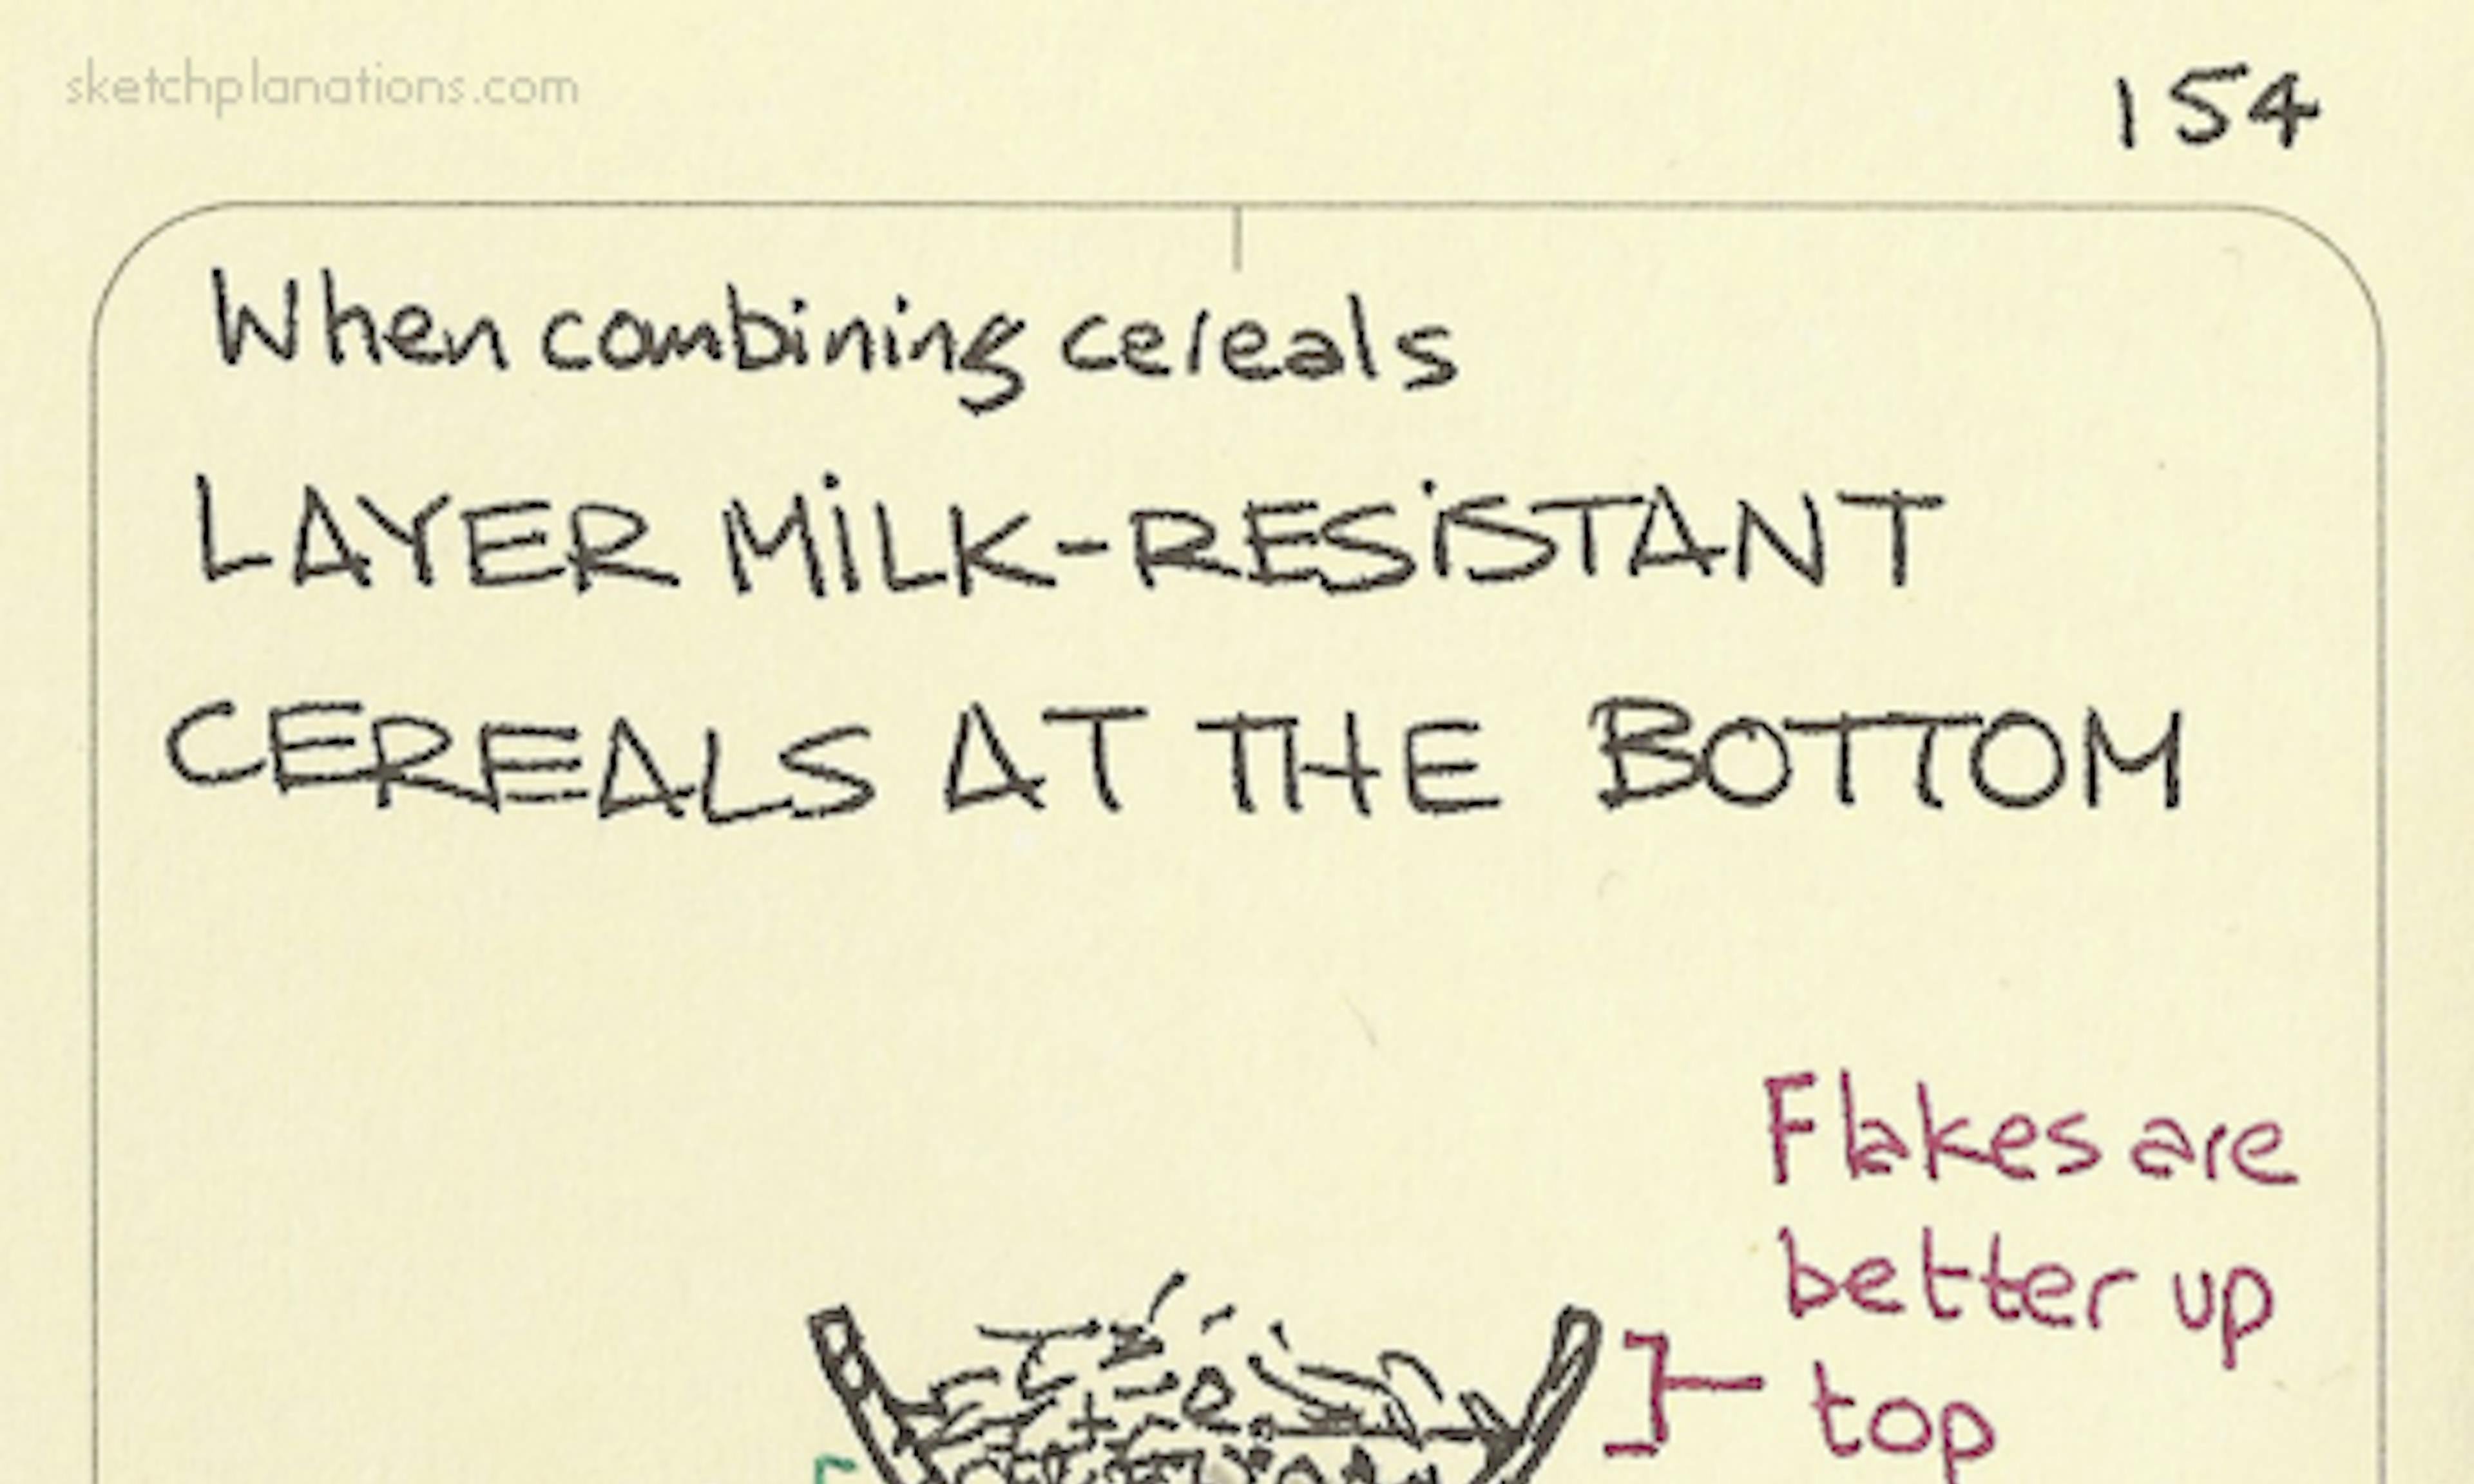 sketchplanations.com
154
When combining cereals
LAYER MILK-RESISTANT
CEREALS AT THE BOTTOM
Flakes are
better up
top